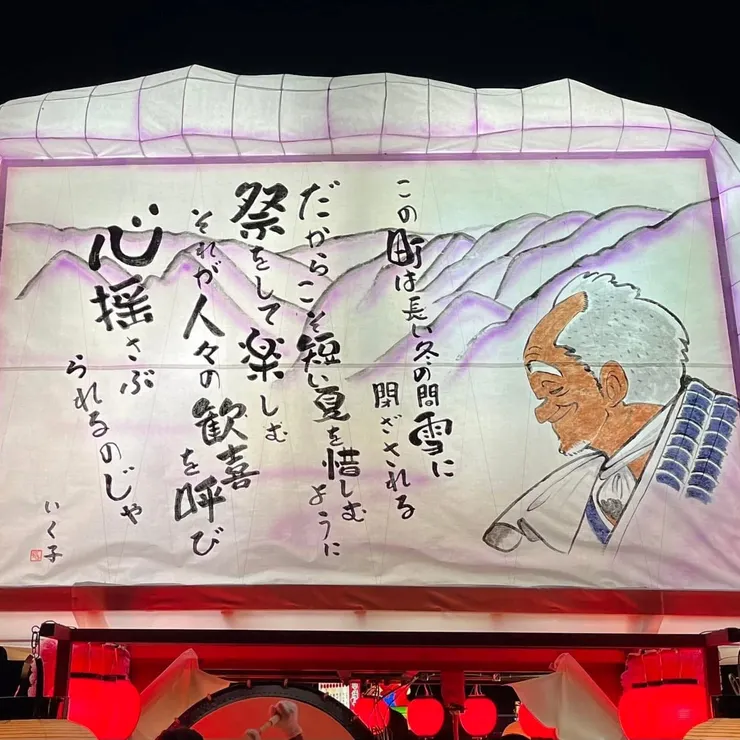 この町は長い冬の間雪に
閉ざされる
だからこそ短い夏を惜しむように
祭をして楽しむ
それが人々の歓喜を呼び
心揺さぶ
られるのじゃ
いく子